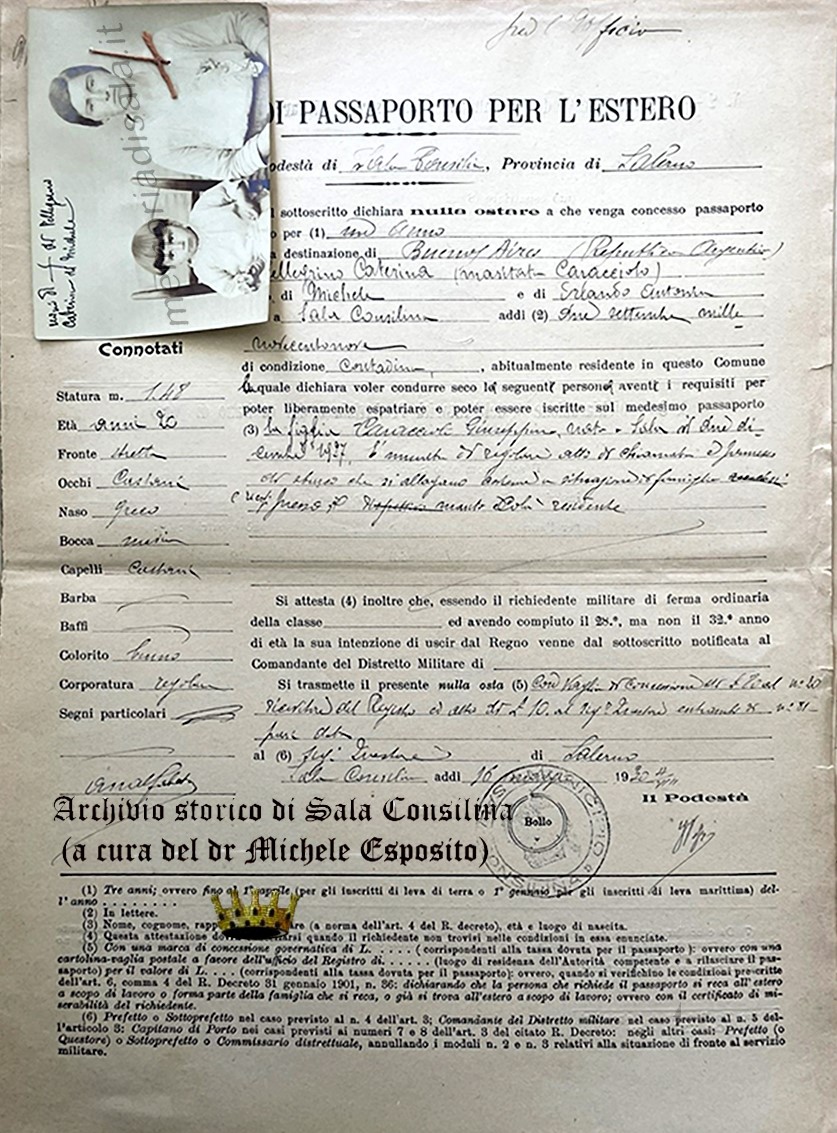 per l'Ufficio
DI PASSAPORTO PER L'ESTERO
odestà di Sala Consilina, Provincia di Salerno
l sottoscritto dichiara nulla ostare a che venga concesso passaporto
o per (1) un anno
a destinazione di Buenos Aires (Repubblica Argentina)
ellegrino Caterina (maritata Caracciolo)
di Michele e di Antonia
a Sala Consilina addì (2) due settembre mille
novecentonove
di condizione contadina, abitualmente residente in questo Comune
la quale dichiara voler condurre seco le seguenti persone aventi i requisiti per
poter liberamente espatriare e poter essere iscritte sul medesimo passaporto
(3) la figlia Caracciolo Giuseppina, nata a Sala il due di-
cembre 1927. È munita di regolare atto di chiamata e permesso
di sbarco che si allegano assieme a situazione di famiglia
presso il marito colà residente
Connotati
Statura m. 1.48
Età anni 20
Fronte stretta
Occhi Castani
Naso greco
Bocca media
Capelli Castani
Barba
Baffi
Colorito bruno
Corporatura regolare
Segni particolari
analfabeta
Si attesta (4) inoltre che, essendo il richiedente militare di ferma ordinaria
della classe ed avendo compiuto il 28.º, ma non il 32.º anno
di età la sua intenzione di uscir dal Regno venne dal sottoscritto notificata al
Comandante del Distretto Militare di
Si trasmette il presente nulla osta (5) Con Vaglia di concessione di £ 20 al n.º 20
del Registro ed altro di £ 10 al n.º 21
pari data
al (6) di Salerno
Sala Consilina addì 16 1930
Il Podestà
Bollo
Archivio storico di Sala Consilina
(a cura del dr Michele Esposito)
memoriadisala.it
(1) Tre anni; ovvero fino al 1º aprile (per gli inscritti di leva di terra o 1º gennaio per gli inscritti di leva marittima) del-
l'anno . . . . . . . .
(2) In lettere.
(3) Nome, cognome, rapp are (a norma dell'art. 4 del R. decreto), età e luogo di nascita.
(4) Questa attestazione do arsi quando il richiedente non trovisi nelle condizioni in essa enunciate.
(5) Con una marca di concessione governativa di L. . . . . . (corrispondenti alla tassa dovuta per il passaporto): ovvero con una
cartolina-vaglia postale a favore dell'ufficio del Registro di. . . . . . (luogo di residenza dell'Autorità competente a rilasciare il pas-
saporto) per il valore di L. . . . (corrispondenti alla tassa dovuta per il passaporto): ovvero, quando si verifichino le condizioni prescritte
dell'art. 6, comma 4 del R. Decreto 31 gennaio 1901, n. 36: dichiarando che la persona che richiede il passaporto si reca all'estero
a scopo di lavoro o forma parte della famiglia che si reca, o già si trova all'estero a scopo di lavoro; ovvero con il certificato di mi-
serabilità del richiedente.
(6) Prefetto o Sottoprefetto nel caso previsto al n. 4 dell'art. 3; Comandante del Distretto militare nel caso previsto al n. 5 del-
l'articolo 3: Capitano di Porto nei casi previsti ai numeri 7 e 8 dell'art. 3 del citato R. Decreto: negli altri casi: Prefetto (o
Questore) o Sottoprefetto o Commissario distrettuale, annullando i moduli n. 2 e n. 3 relativi alla situazione di fronte al servizio
militare.